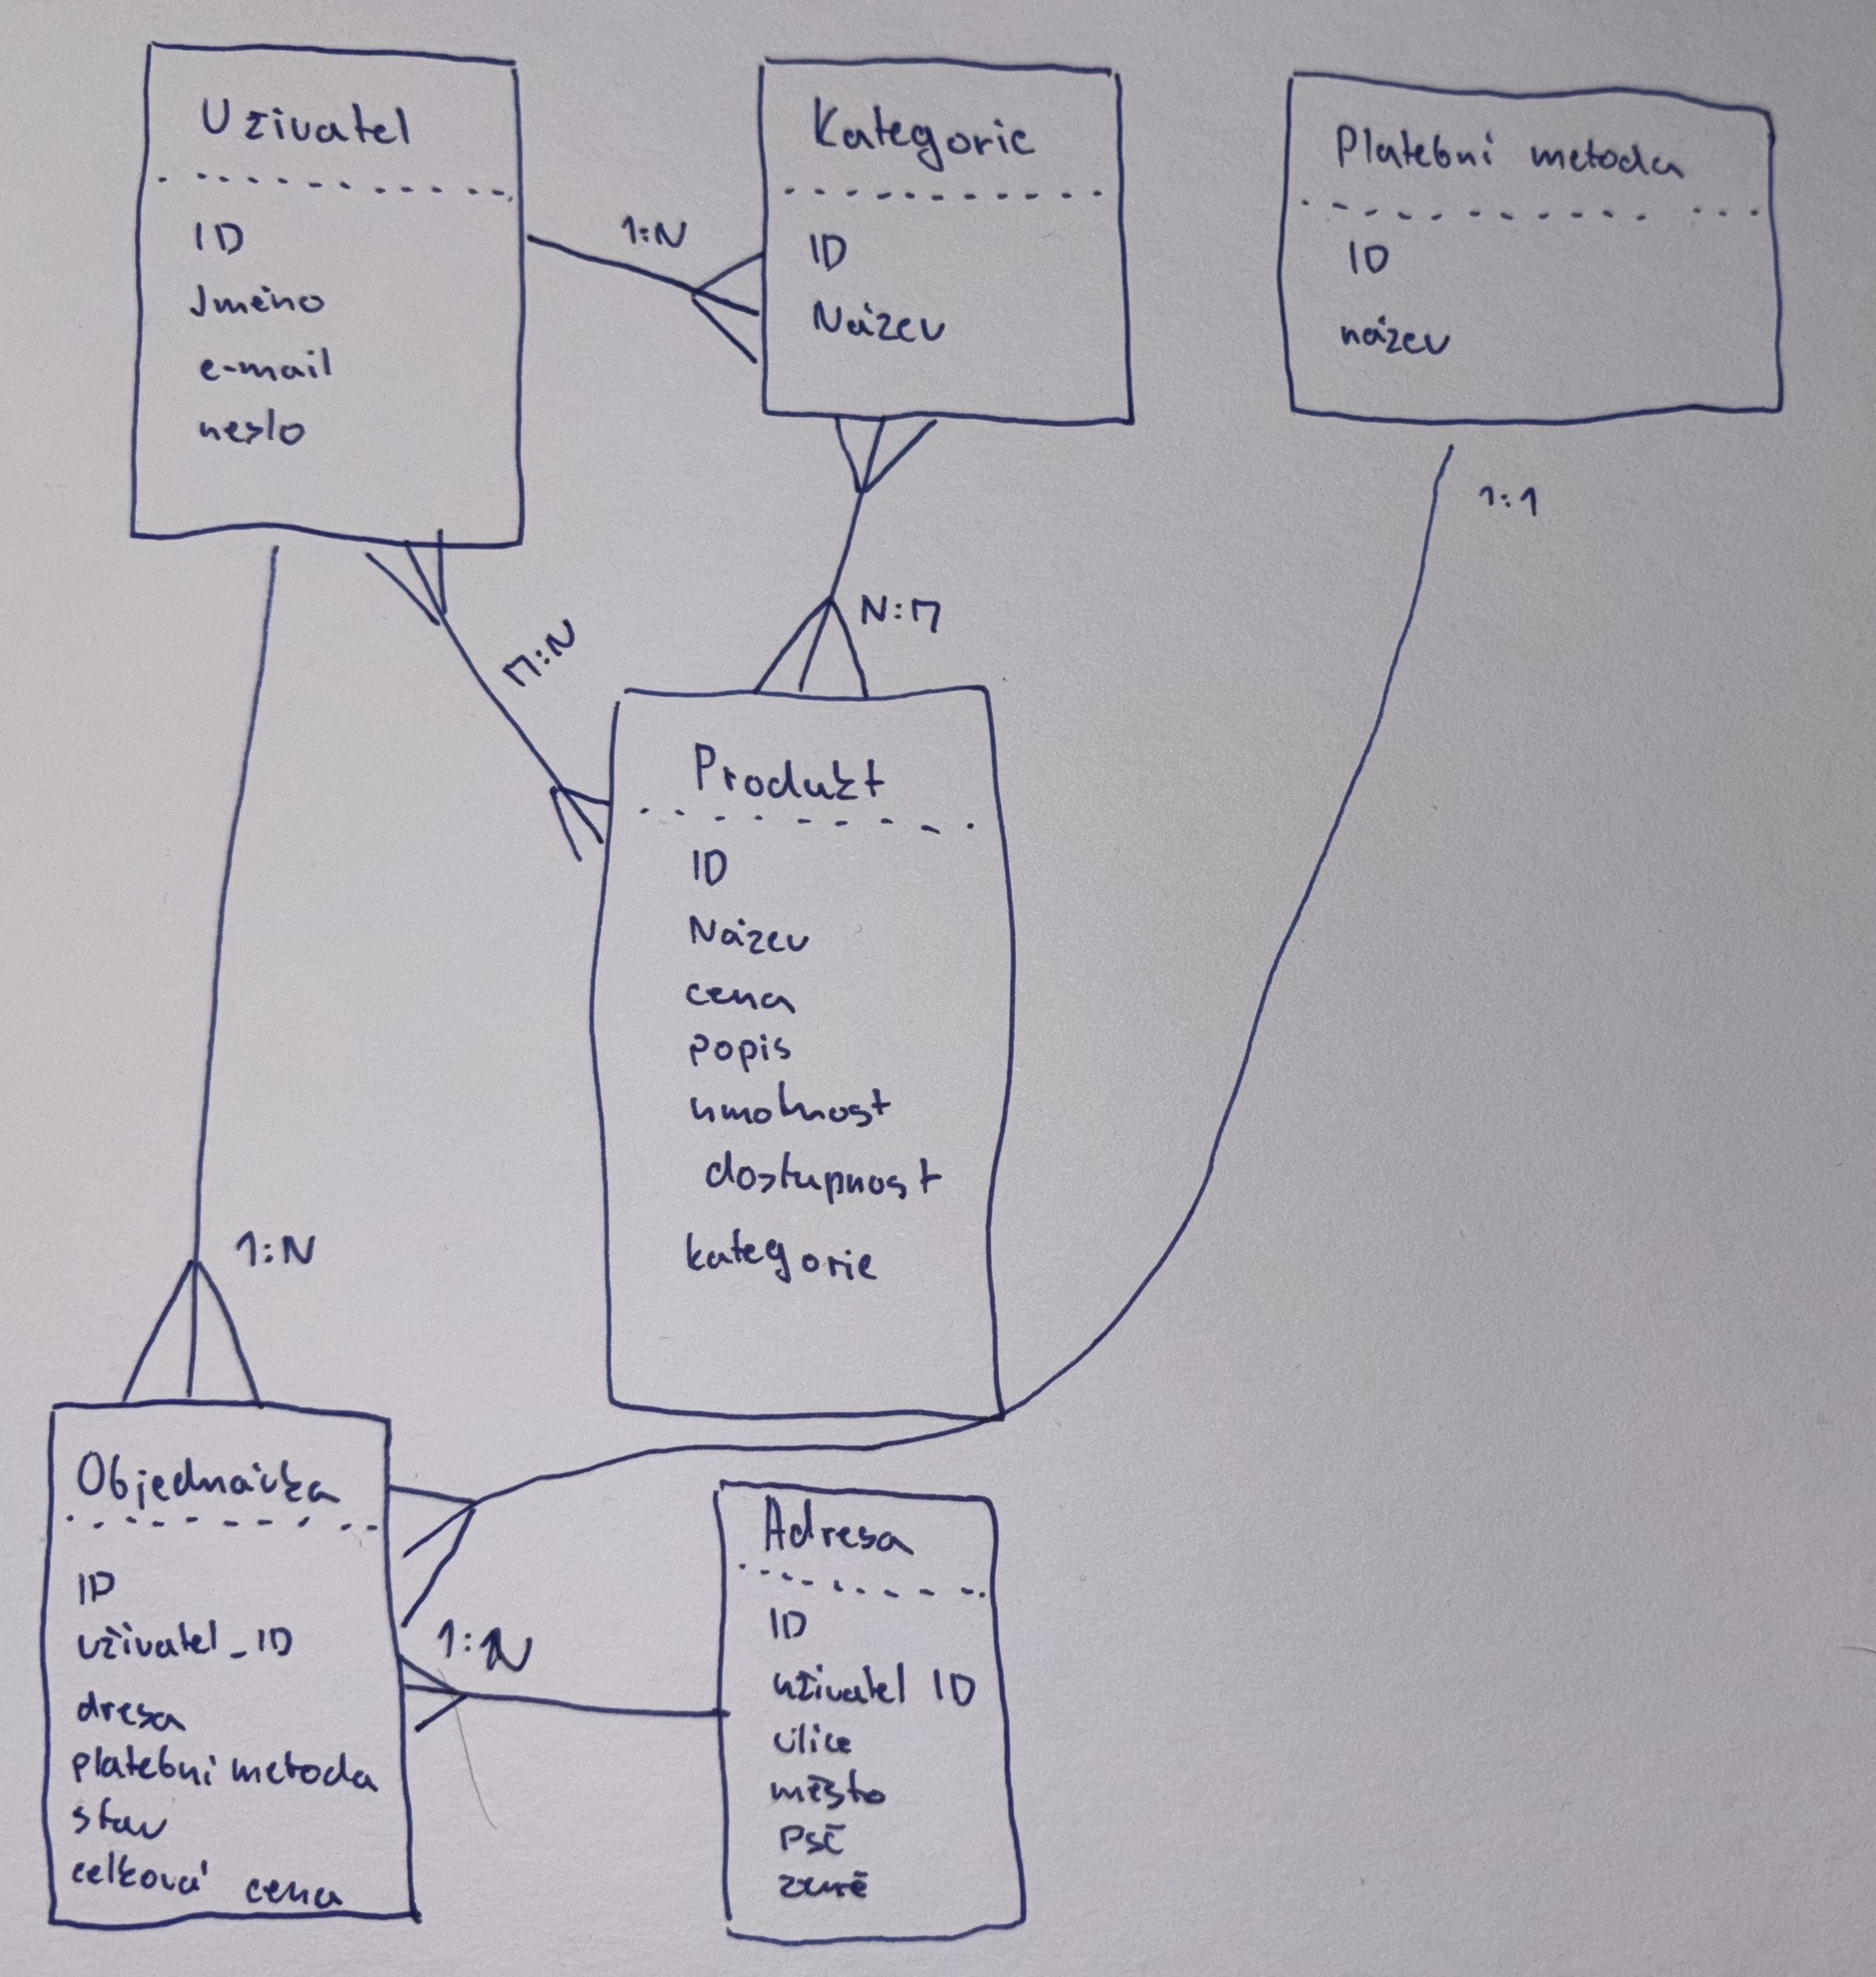 Uživatel
ID
Jméno
e-mail
heslo
1:N
Kategorie
ID
Název
Platební metoda
ID
název
1:1
M:N
N:M
Produkt
ID
Název
cena
popis
hmotnost
dostupnost
kategorie
1:N
Objednávka
ID
uživatel_ID
dresa
platební metoda
stav
celková cena
1:N
Adresa
ID
uživatel ID
ulice
město
PSČ
země